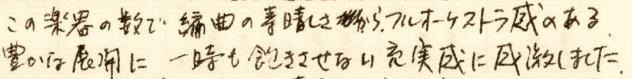 この楽器の数で編曲の素晴しさから、フルオーケストラ感のある
豊かな展開に一時も飽きさせない充実感に感激しました。